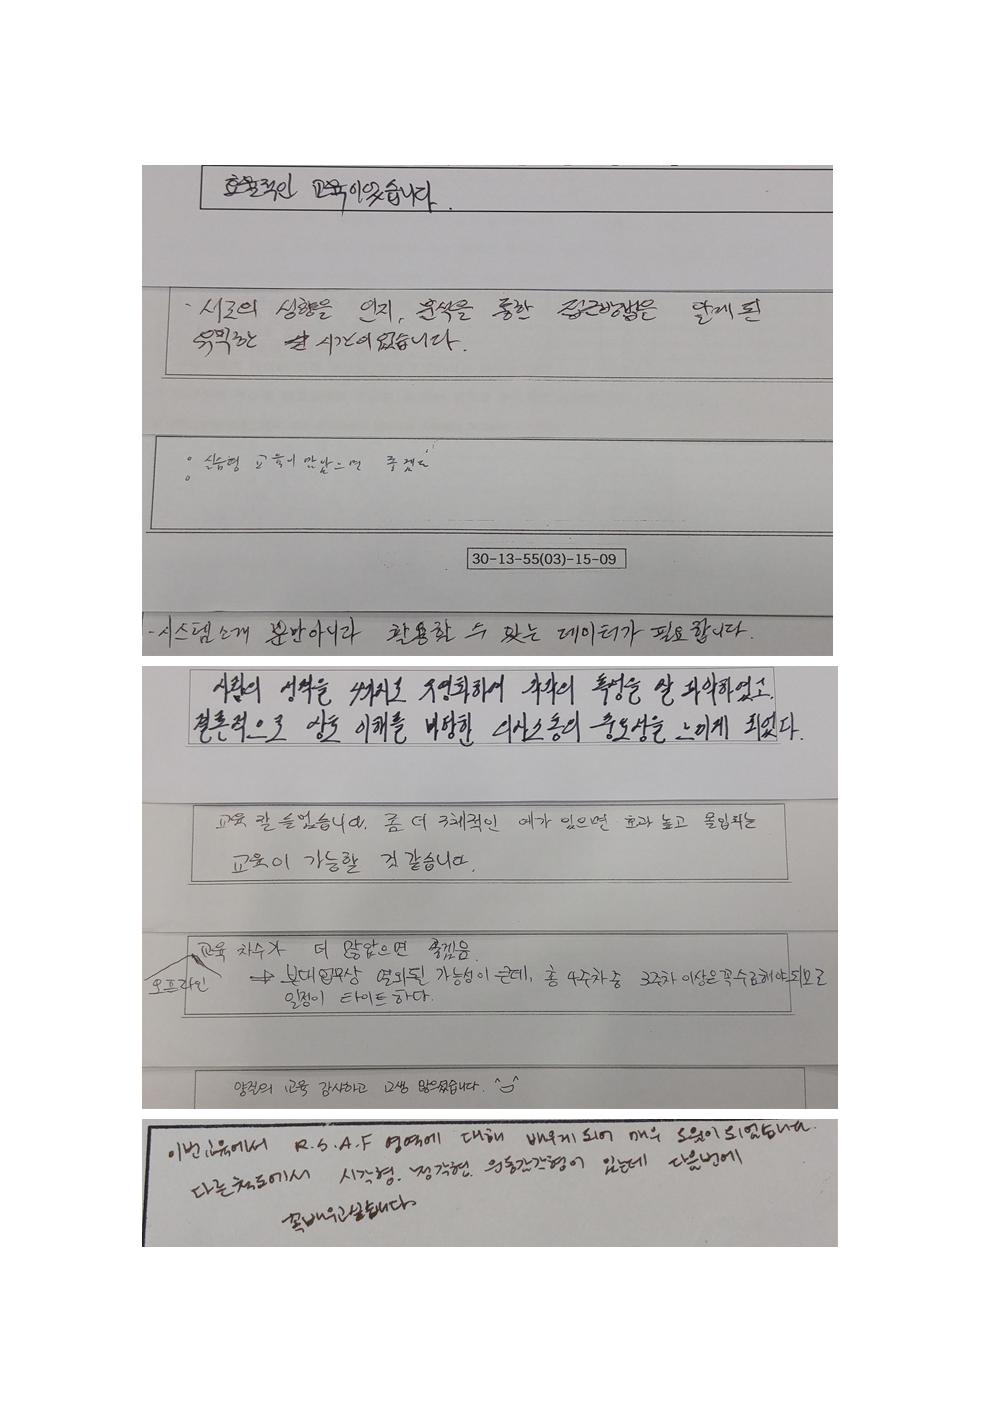 효율적인 교육이었습니다.
- 서로의 성향을 인지, 분석을 통한 접근방법을 알게 된
유익한 시간이었습니다.
실습형 교육이 많았으면 좋겠다
30-13-55(03)-15-09
- 시스템소개 뿐만아니라 활용할 수 있는 데이터가 필요합니다.
사람의 성격을 4가지로 유형화하여 각각의 특성을 잘 파악하였고,
결론적으로 상호 이해를 바탕한 의사소통의 중요성을 느끼게 되었다.
교육 잘 들었습니다. 좀 더 구체적인 예가 있으면 효과 높고 몰입되는
교육이 가능할 것 같습니다.
교육 차수가 더 많았으면 좋겠음
오프라인
→ 부대업무상 열외될 가능성이 큰데, 총 4주차 중 3주차 이상은 꼭 수료해야 되므로
일정이 타이트하다.
양질의 교육 감사하고 고생 많으셨습니다. ^^
이번 교육에서 R.S.A.F 영역에 대해 배우게 되어 매우 도움이 되었습니다.
다른 척도에서 시각형. 청각형. 운동감각형이 있는데 다음번에
꼭 배우고 싶습니다